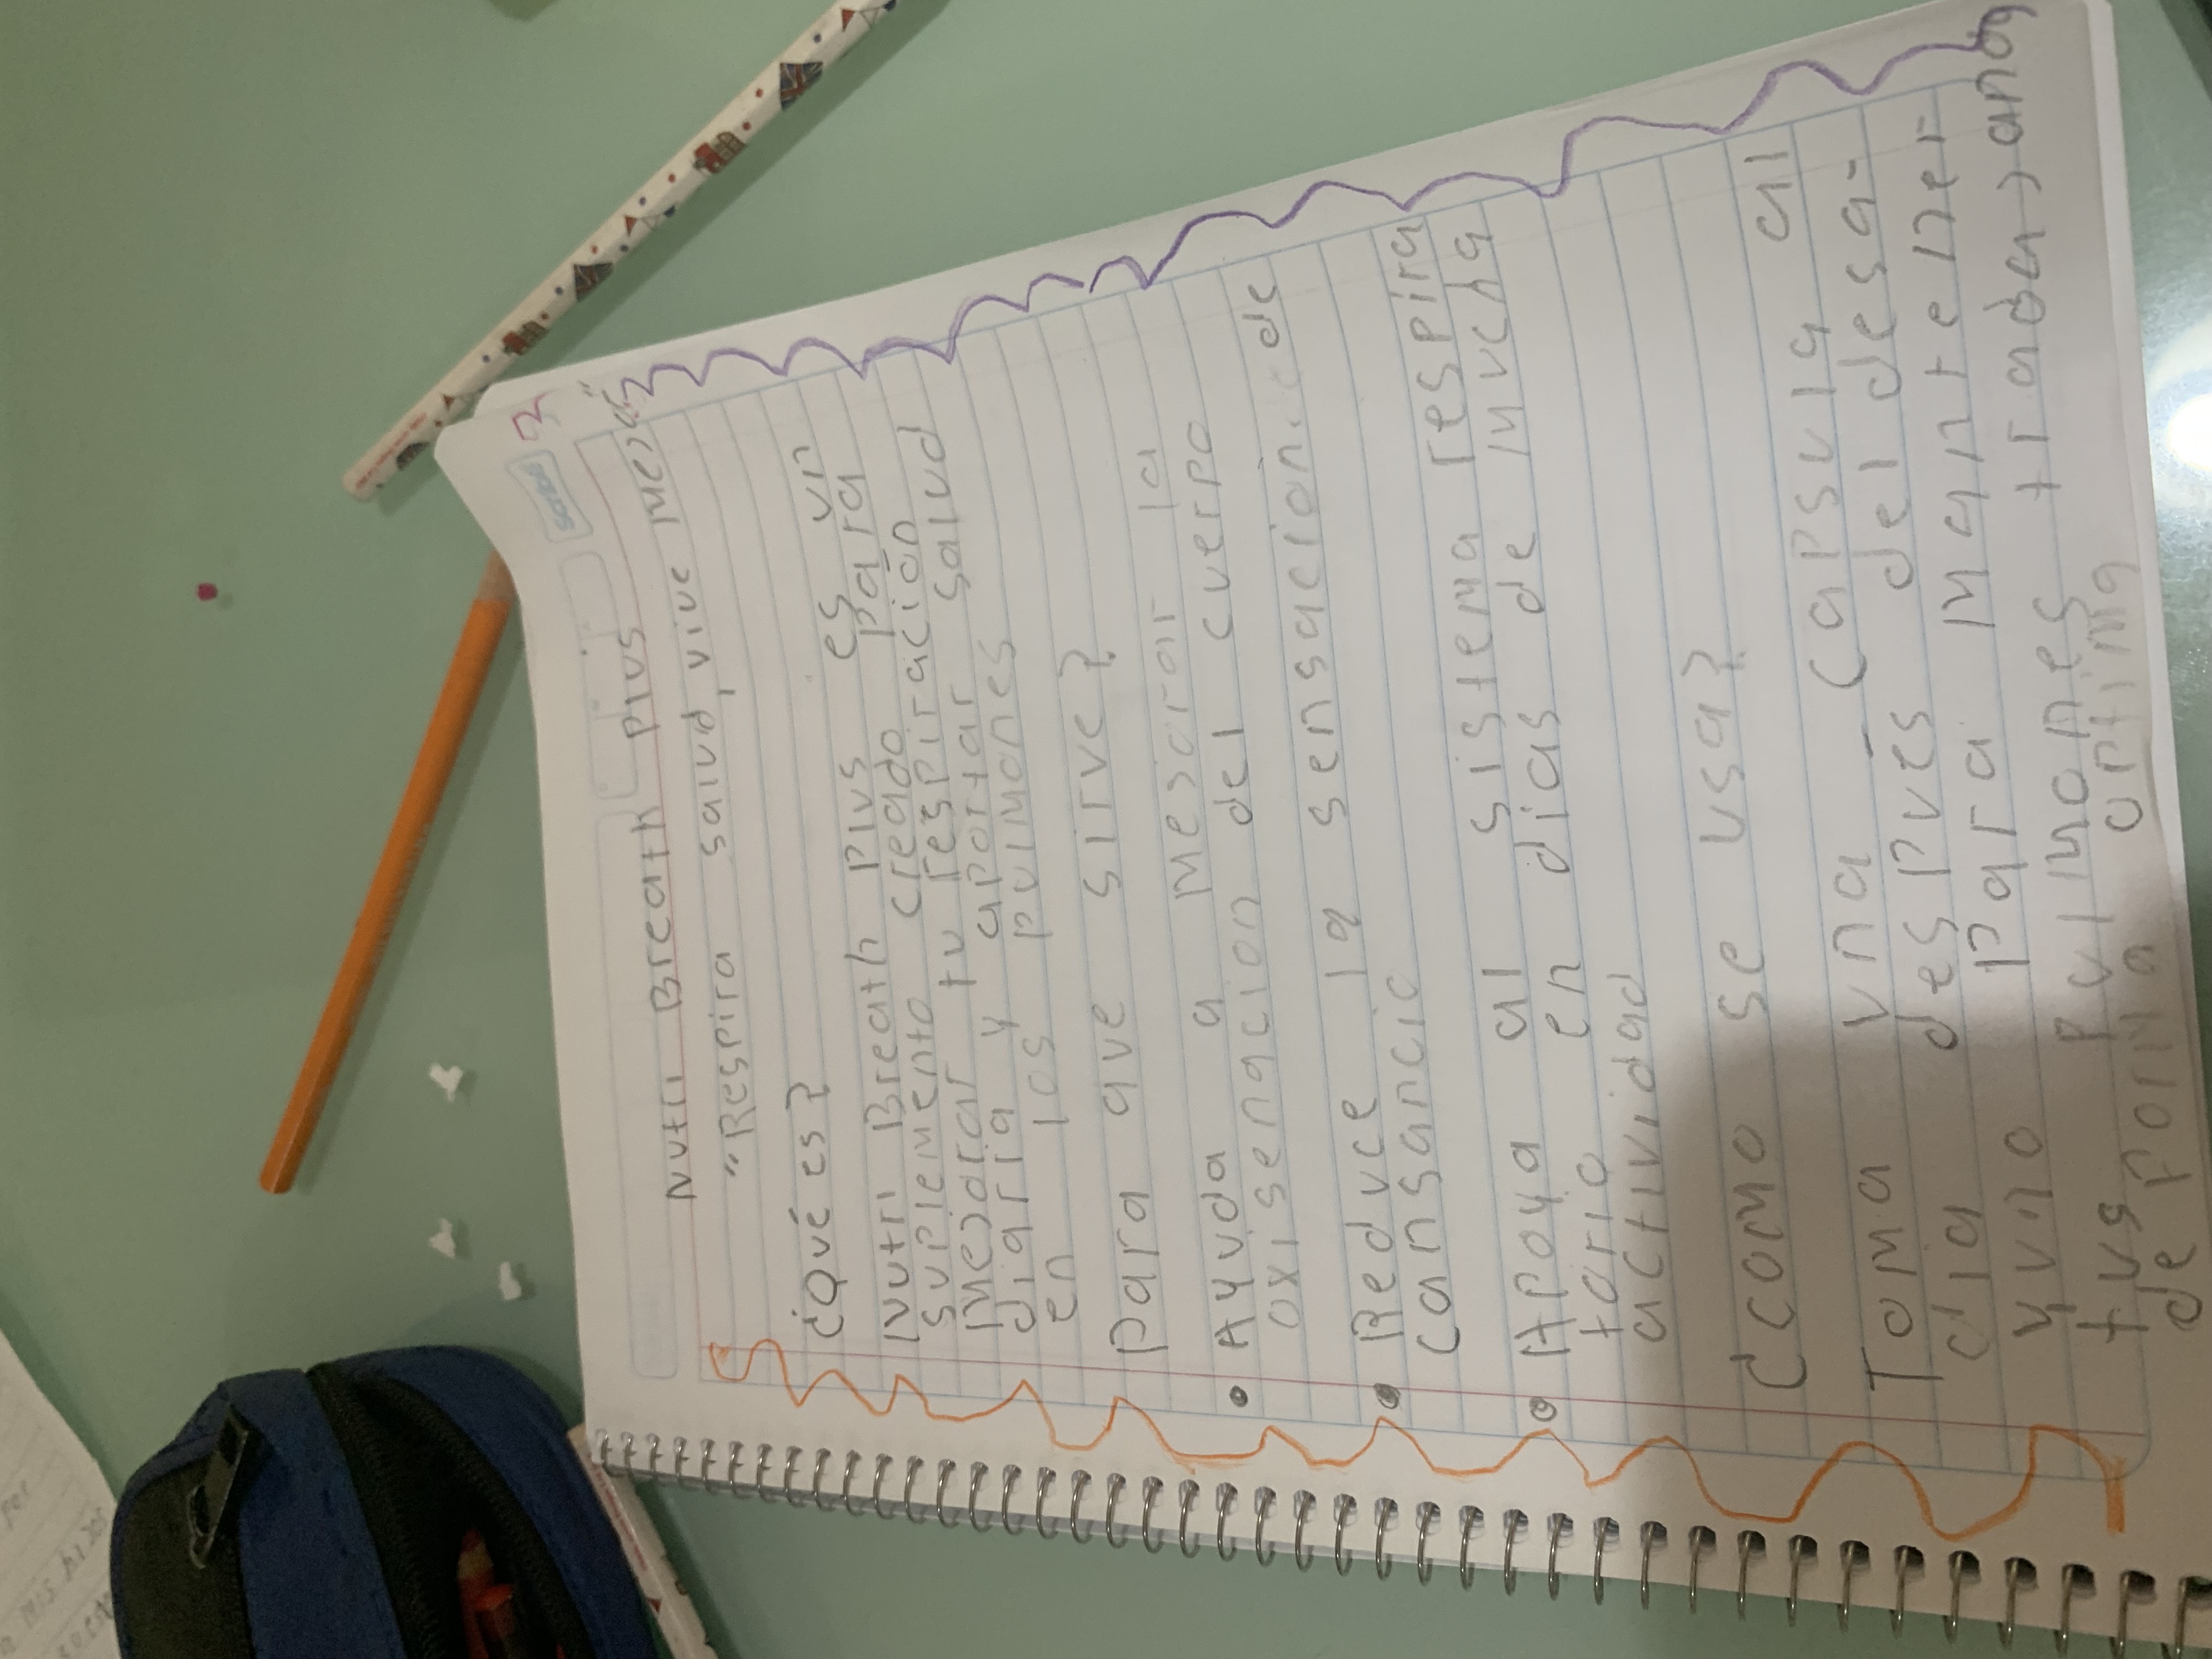 Nutri Breath Plus
"Respira salud, vive mejor"
¿Qué es?
Nutri Breath Plus es un
suplemento creado para
mejorar tu respiración
diaria y aportar salud
en los pulmones
Para que sirve?
• Ayuda a mejorar la
oxisenacion del cuerpo
• Reduce la sensacion de
cansancio
• Apoya al sistema respira
torio en dias de mucha
actividad
Como se usa?
Toma una capsula al
dia despues del desa-
yuno para mantener
tus pulmones trabajando
de forma optima
Scribe
mis hijos